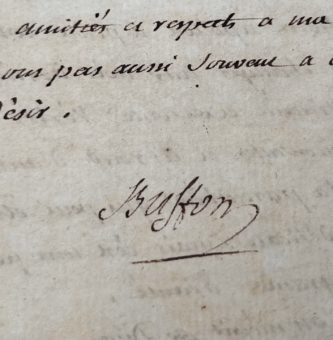 amitiés et respects a ma
vous pas aussi souvent a
désir.
Buffon